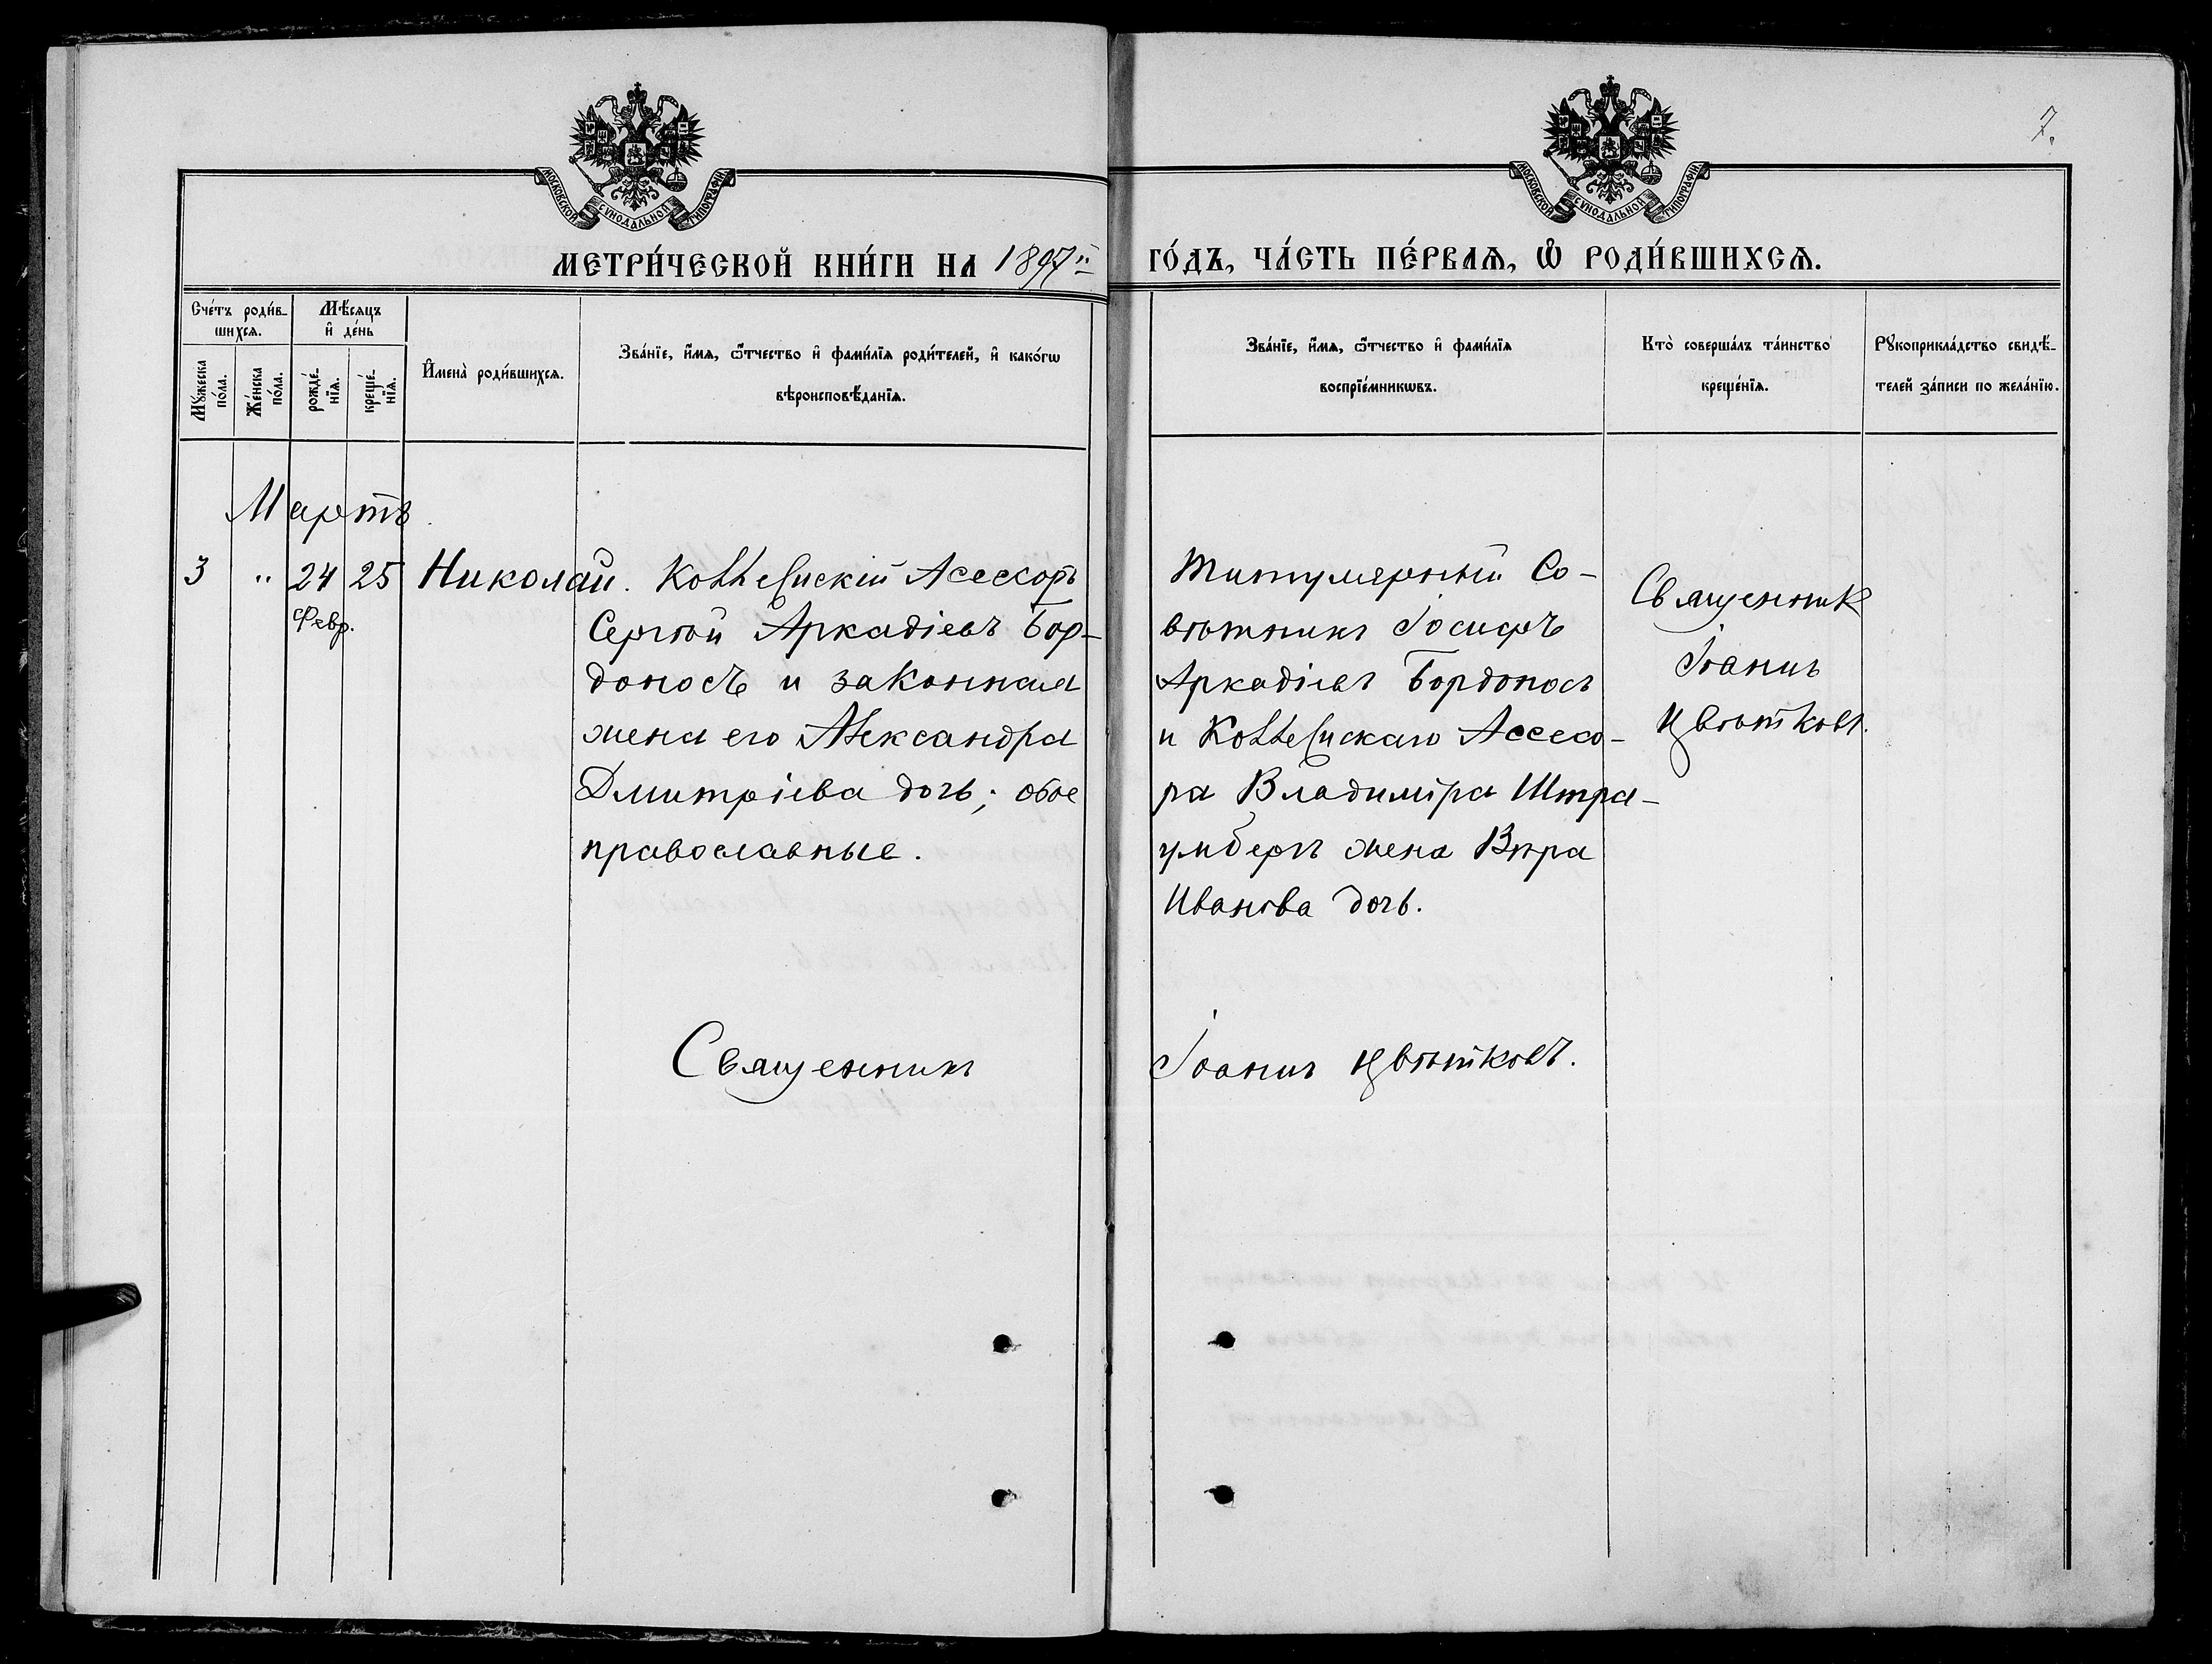 7.
МОСКОВСКОЙ СѴНОДАЛЬНОЙ ТИПОГРАФІИ
МОСКОВСКОЙ СѴНОДАЛЬНОЙ ТИПОГРАФІИ
МЕТРИ́ЧЕСКОЙ КНИ́ГИ НА 1897й ГО́ДЪ, ЧА́СТЬ ПЕ́РВАѦ, Ѡ҆ РОДИ́ВШИХСѦ.
Сче́тъ роди́в-
шихсѧ.
Мѣ́сяцъ
и҆ де́нь
Мꙋ́жеска
по́ла.
Же́нска
по́ла.
рожде́-
нїѧ.
креще́-
нїѧ.
И҆мена̀ роди́вшихсѧ.
Зва́нїе, и҆́мѧ, ѻ҆́тчество и҆ фами́лїѧ роди́телей, и҆ како́гѡ
вѣроисповѣ́данїѧ.
Зва́нїе, и҆́мѧ, ѻ҆́тчество и҆ фами́лїѧ
воспрїе́мникѡвъ.
Кто̀ соверша́лъ та́инство
креще́нїѧ.
Рꙋкоприкла́дство свидѣ́-
телей за́писи по жела́нїю.
Мартъ
3 " 24 25 Николай.
Февр.
Коллежскій Асессоръ
Сергѣй Аркадіевъ Бор-
доносъ и законная
жена его Александра
Дмитріева дочь; обое
православные.
Титулярный Со-
вѣтникъ Іосифъ
Аркадіевъ Бордоносъ
и Коллежскаго Ассесо-
ра Владиміра Штра-
умбергъ жена Вѣра
Иванова дочь.
Священникъ
Іоаннъ
Цвѣтковъ.
Священникъ Іоаннъ Цвѣтковъ.